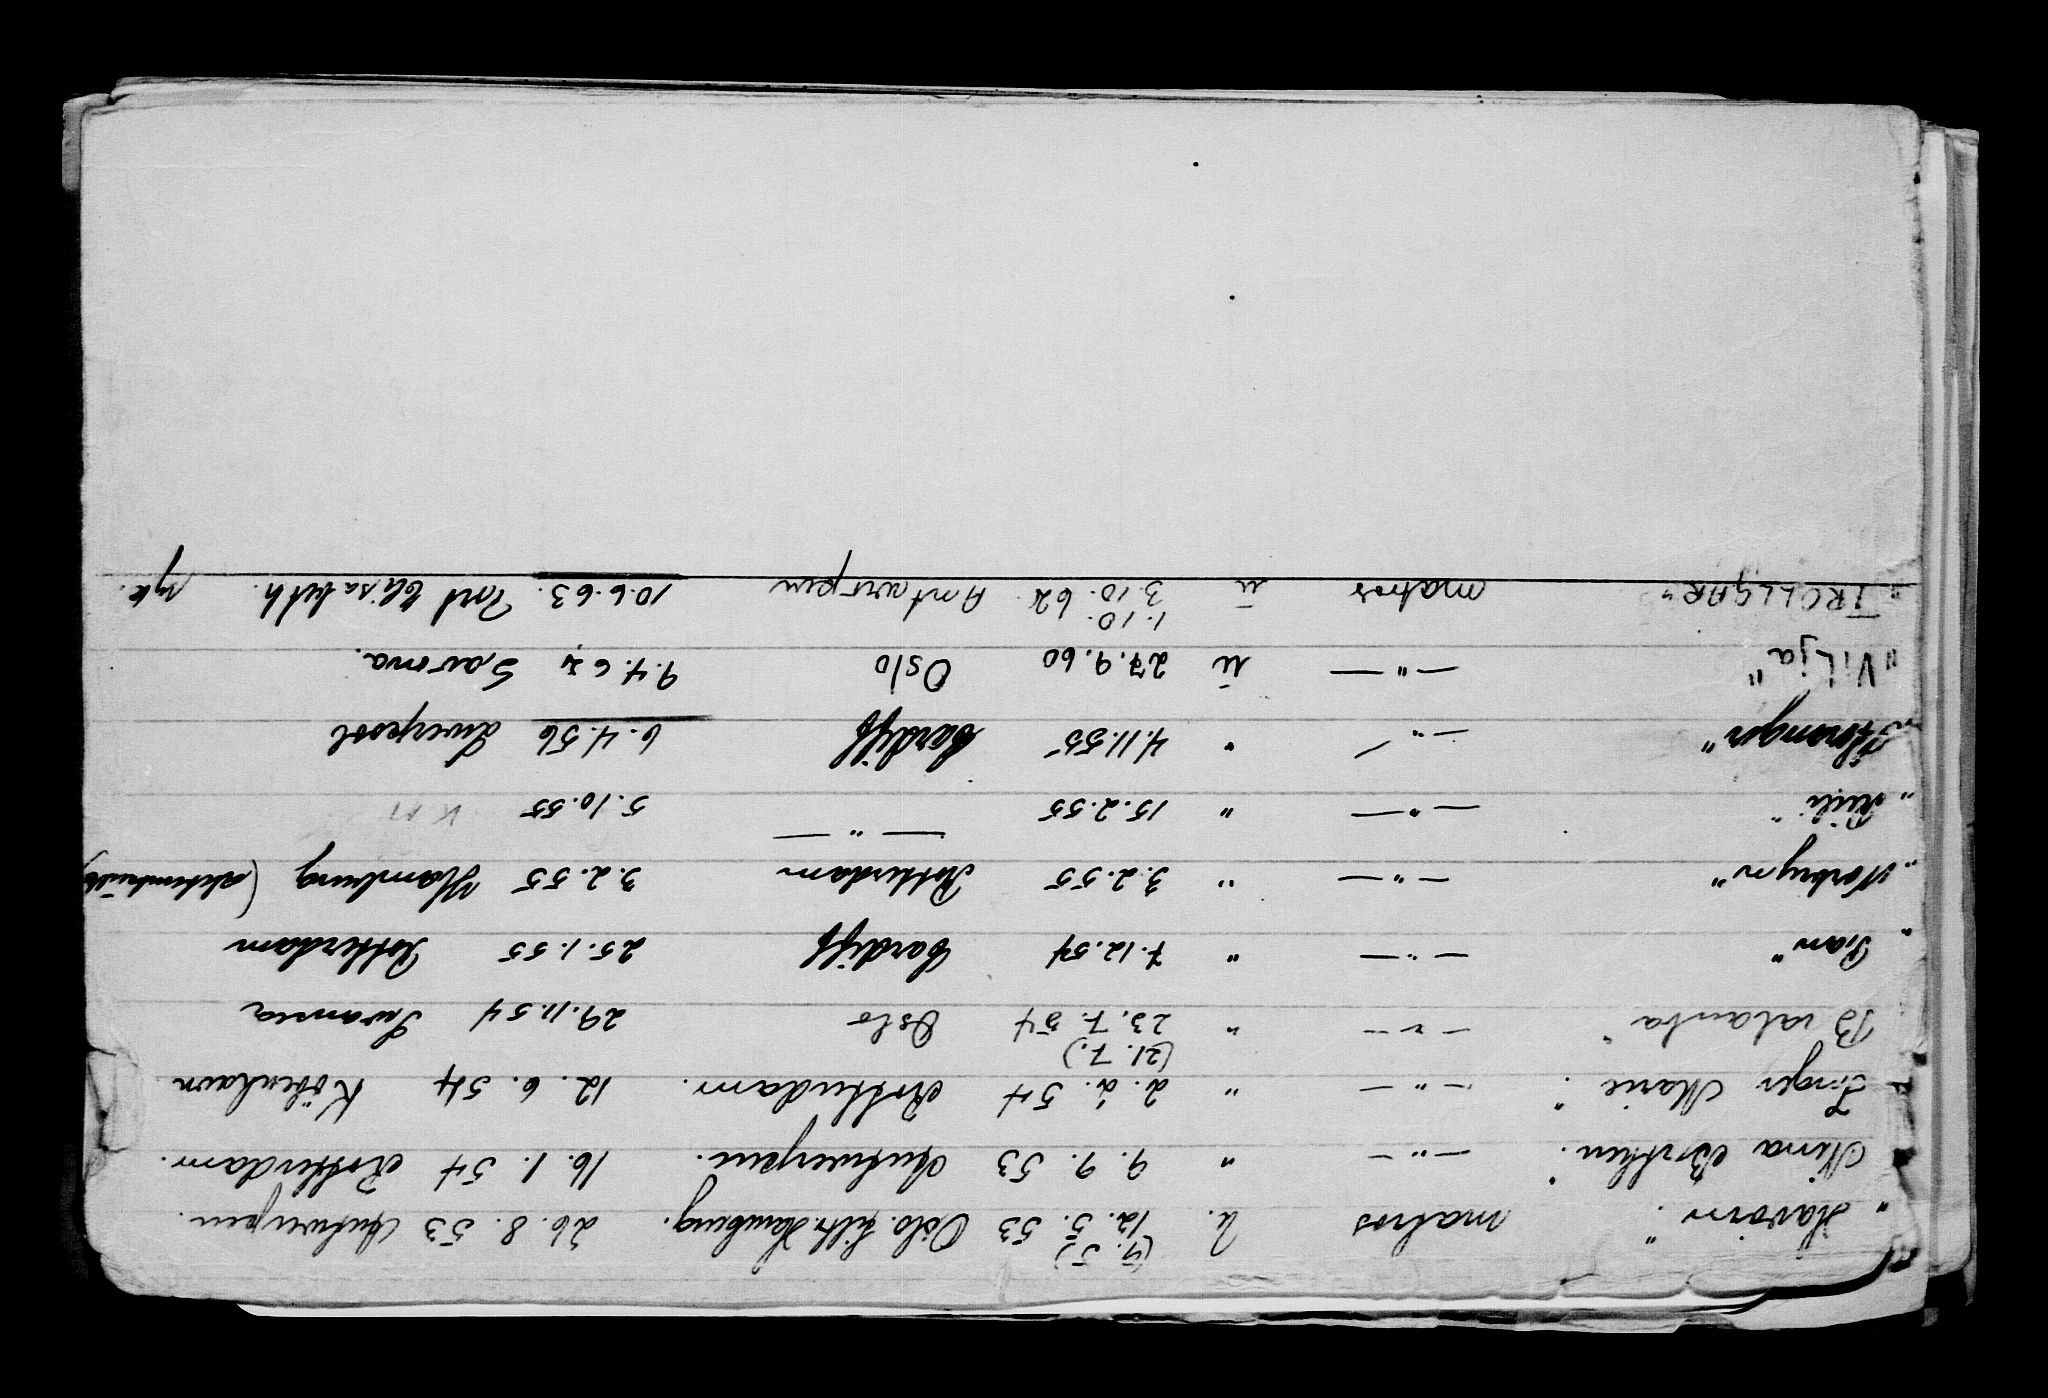 "Havörn". matros u. (9.5) 12. 5. 53 Oslo. tiltr. Hamburg. 26. 8. 53 Antwerpen.
Nina Borthen". —„— " 9. 9. 53 Antwerpen. 16. 1. 54 Rotterdam.
Inger Marie". —„— " 2. 2. 54 Rotterdam. 12. 6. 54 Köbenhavn
Bialanta" —„— " (21. 7.) 23. 7. 54 Oslo 29. 11. 54 Swansea
"Ran" —„— " 7.12.54 Cardiff 25.1.55 Rotterdam
"Norbryn" —„— " 3.2.55 Rotterdam 3.2.55 Hamburg
" " —„— " 15.2.55 —„— 5.10.55 KM
" " —„— " 4.11.55 Cardiff 6.4.56 Liverpool
"Vilja" —„— u 27.9.60 Oslo 9.4.62 Savona.
"TROLLGAR" matros u 1.10. 3.10.62 Antwerpen 10.6.63. Port Elisabeth. syk.